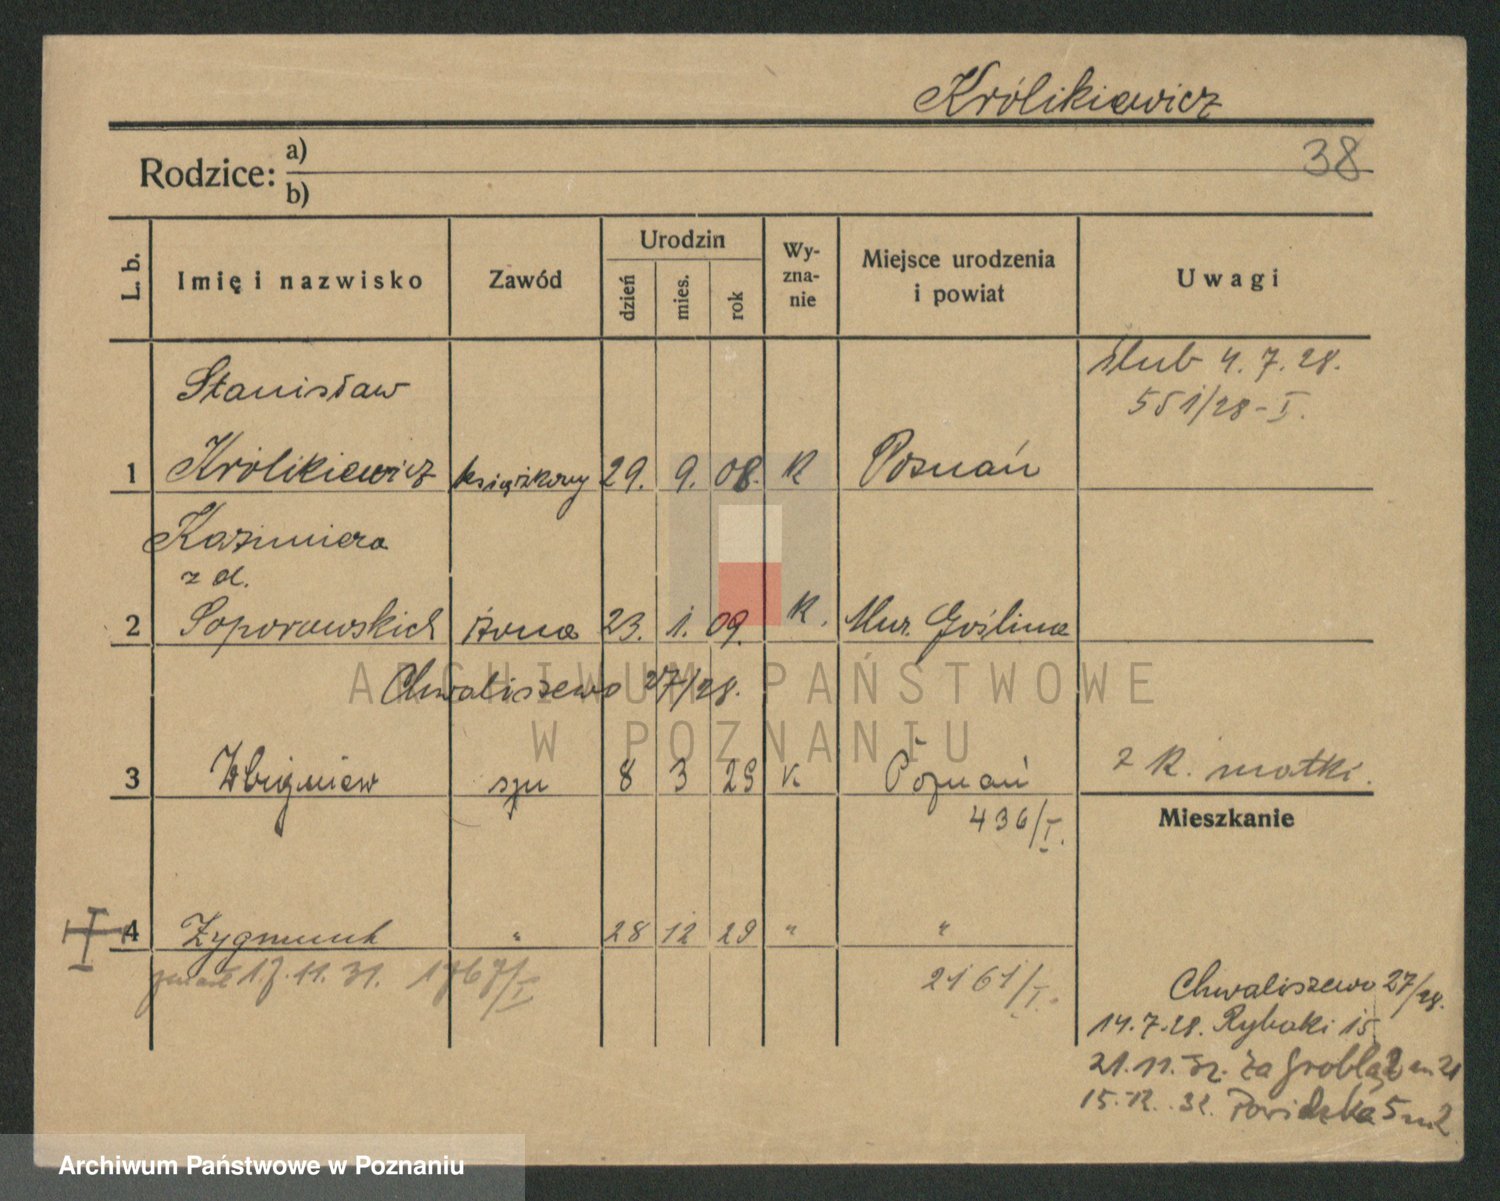 Królikiewicz
38
Rodzice: a)
b)
L. b. Imię i nazwisko Zawód Urodzin dzień mies. rok Wy-zna-nie Miejsce urodzenia i powiat Uwagi
Stanisław ślub 4. 7. 28.
551/28-I.
1 Królikiewicz książkowy 29. 9. 08. K Poznań
Kazimiera
z d.
2 Soporowskich żona 23. 1. 09. K. Mur. Goślina
Chwaliszewo 27/28.
3 Zbigniew syn 8 3 29 K Poznań z K. matki.
436/I.
Mieszkanie
4 Zygmunt " 28 12 29 " "
zmarł 17. 11. 31. 1767/I
2161/I.
Chwaliszewo 27/28.
14.7.28. Rybaki 15
21.11.32. Za Groblą 2 m 21
15.12.32. Powidzka 5 m 2
ARCHIWUM PAŃSTWOWE
W POZNANIU
Archiwum Państwowe w Poznaniu